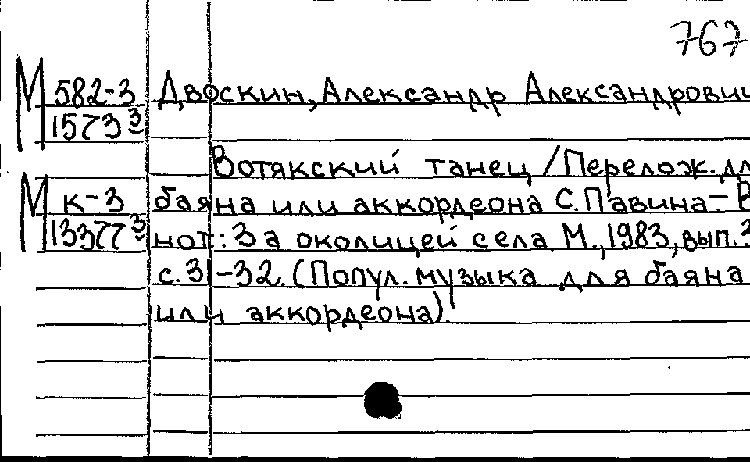 767
М 582-3 Двоскин, Александр Александрович
1573 3
Вотякский танец / Перелож. дл
М К-3 баяна или аккордеона С. Павина.- В
13377 3 нот: За околицей села М., 1983, вып. 3
с. 31-32. (Попул. музыка для баяна
или аккордеона).